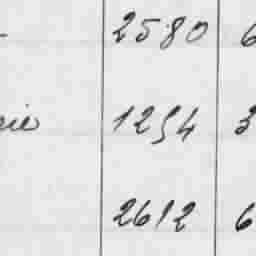 2580 6
rie 1254 3
2612 6